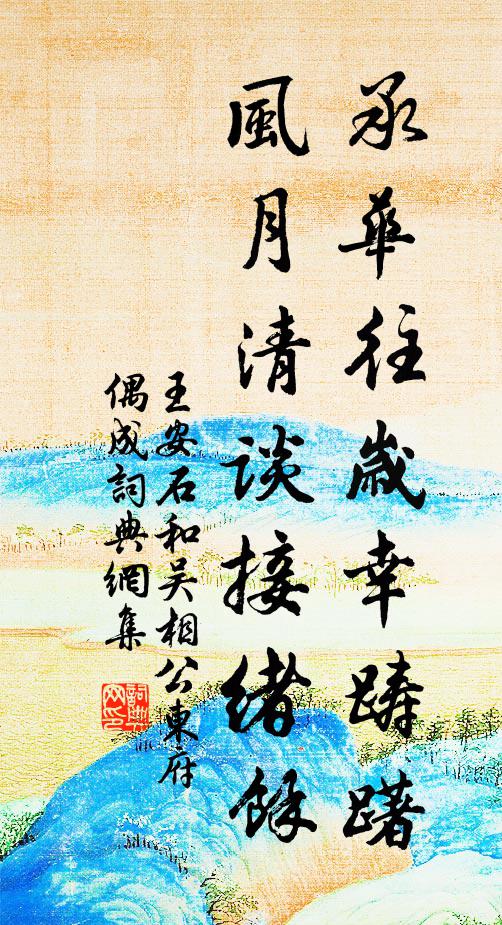 承華往歲幸踌躇
風月清談接緒餘
王安石和吴相公東府
偶成詞典網集